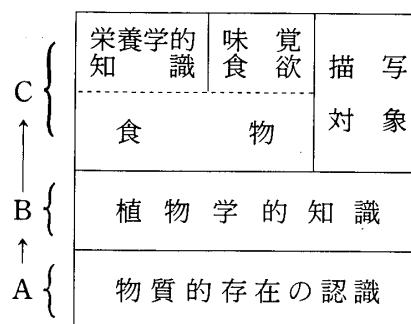 栄養学的
知識
味覚
食欲
描写
対象
食物
C
B
植物学的知識
A
物質的存在の認識